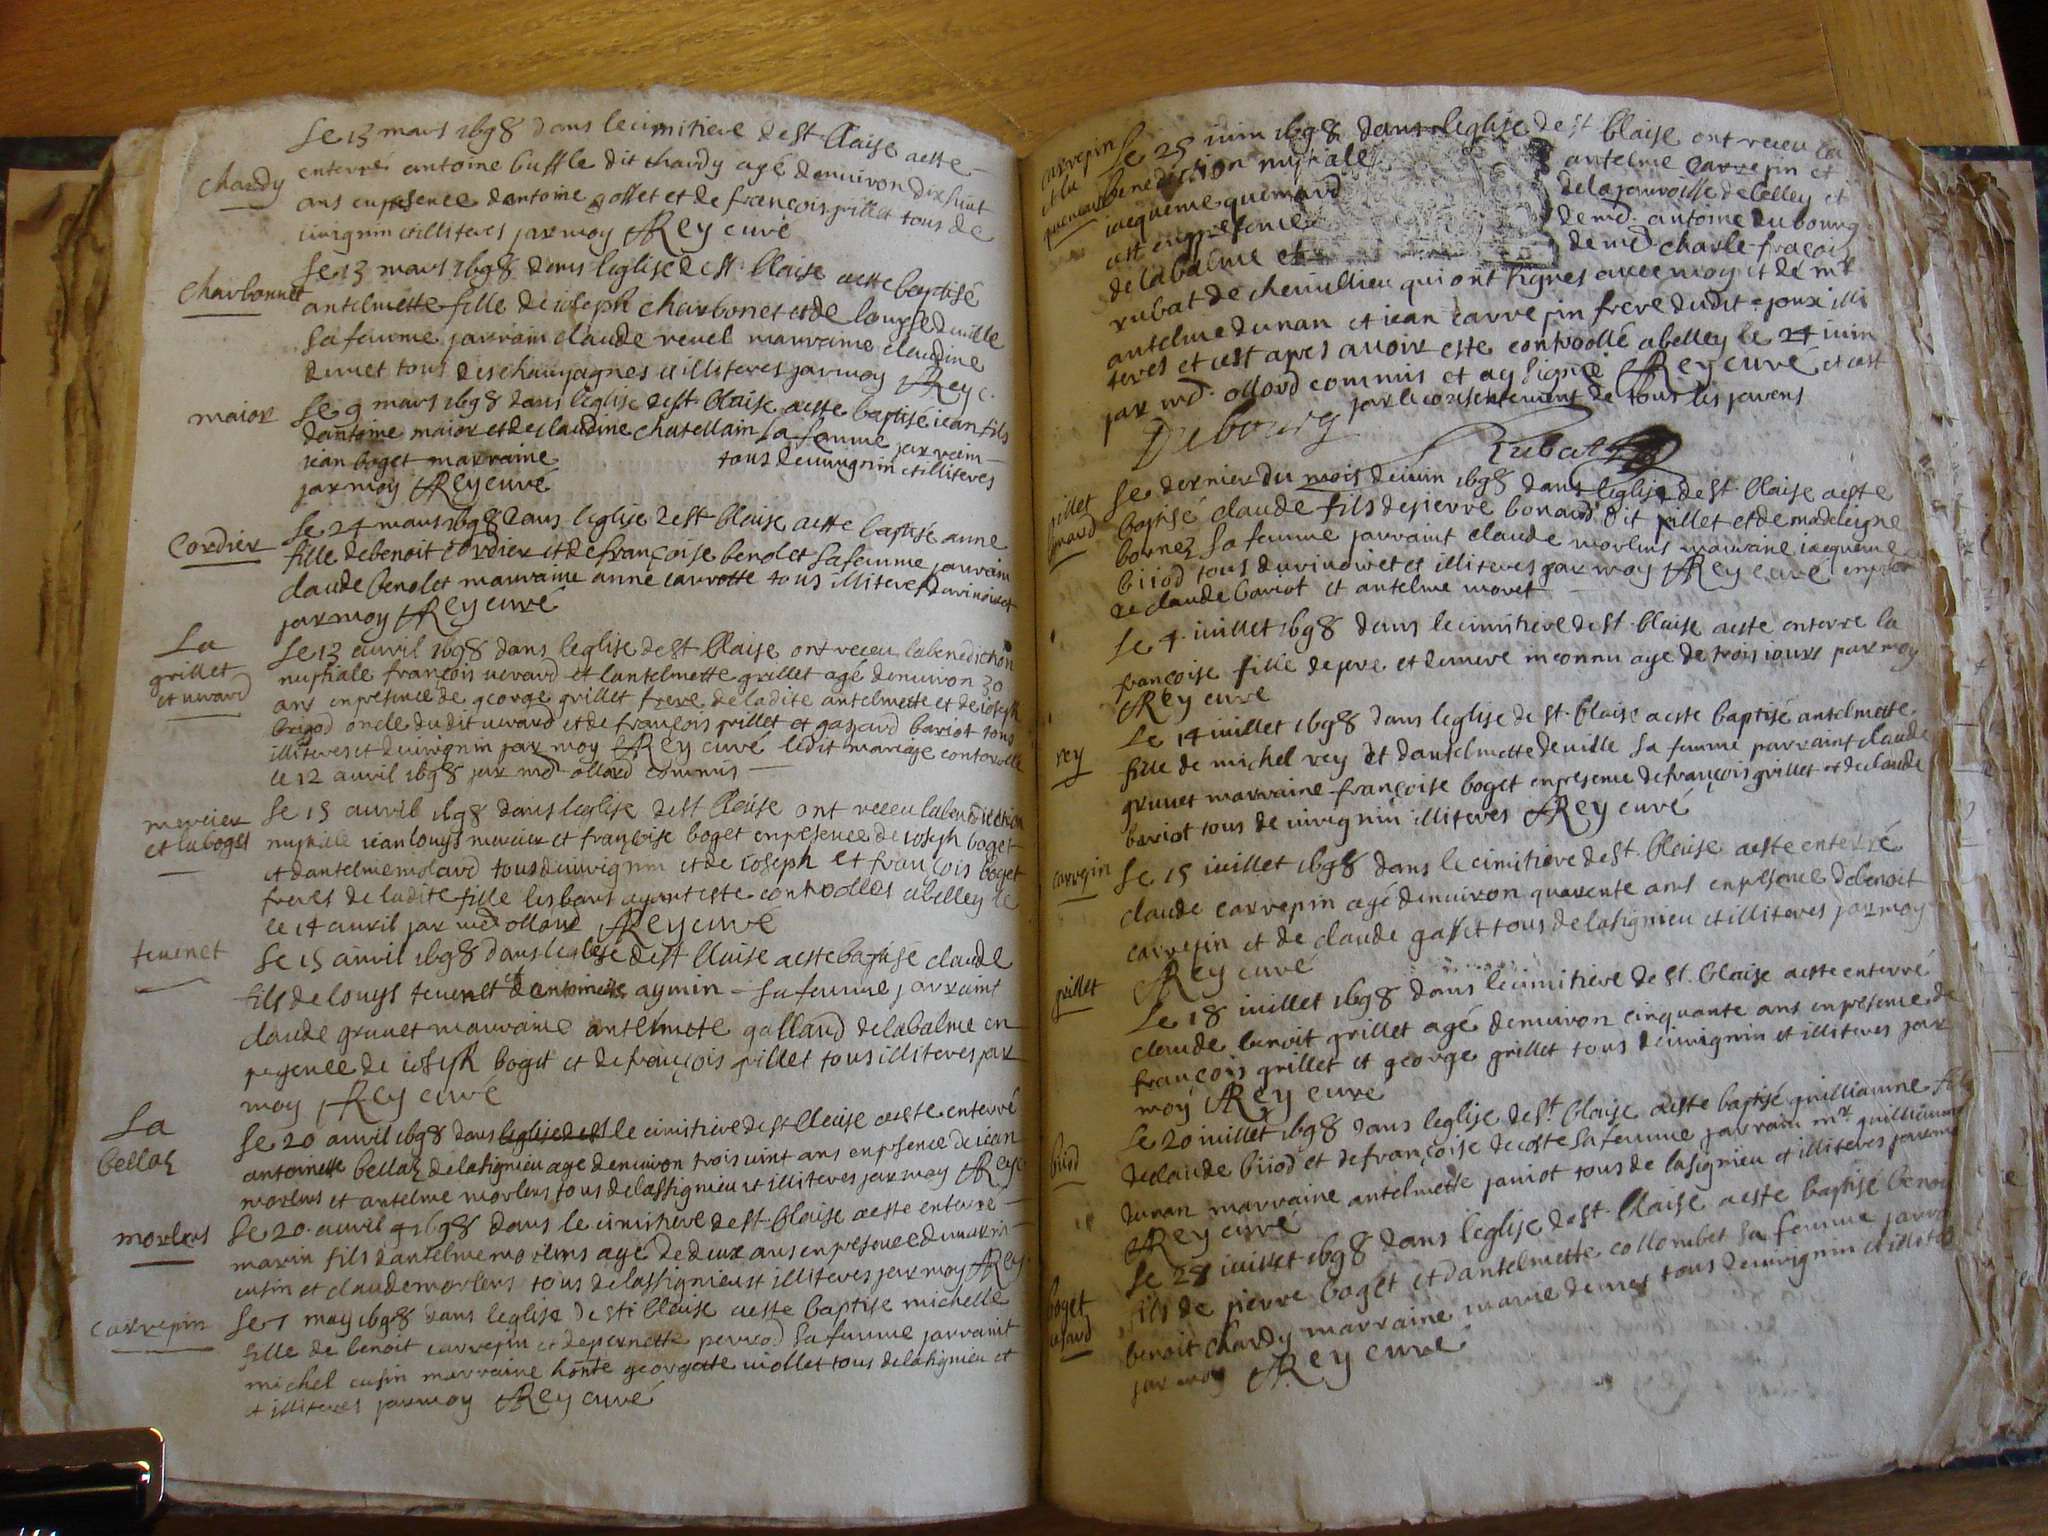 Le 13 mars 1698 dans le cimitiere de st. blaise a esté
chardy
enterré antoine buffle dit chardy agé denuiron dixhuit
ans en presence dantoine gosset et de françois grillet tous de
uirignin illiteres par moy Rey curé
Le 13 mars 1698 dans leglise de st. blaise a este baptisé
charbonnet
antelmette fille de ioseph charbonet et de louyse deuille
sa femme parrain claude reuel marraine claudine
demet tous des champagnes illiteres par moy Rey c.
maior
Le 9 mars 1698 dans leglise de st. blaise a este baptisé iean fils
dantoine maior et de claudine chatellain sa femme parrain
iean boget marraine tous deuirignin et illiteres
par moy Rey curé
Cordier
Le 24 mars 1698 dans leglise de st blaise a esté baptisé anne
fille de benoit cordier et de françoise benolet sa femme parrain
claude benolet marraine anne carrotte tous illiteres
par moy Rey curé
La
grillet
et uerard
Le 13 auril 1698 dans leglise de st. blaise ont receu la benediction
nuptiale françois uerard et lantelmette grillet agé denuiron 30
ans en presence de george grillet frere de la dite antelmette et de ioseph
brigod oncle du dit uerard et de françois grillet et gaspard bariot tous
illiteres et deuirignin par moy Rey curé ledit mariage controlle
le 12 auril 1698 par md ollard commis
mercier
et la boget
Le 15 auril 1698 dans leglise de st blaise ont receu la benediction
nuptiale iean louys mercier et françoise boget en presence de ioseph boget
et dantelme molard tous deuirignin et de ioseph et françois boget
freres de ladite fille les bans ayant este controlles a belley le
le 14 auril par md ollard Rey curé
teuenet
Le 15 auril 1698 dans leglise de st blaise a este baptisé claude
fils de louys teuenet et dantoinette aymin sa femme parraint
claude gruuet marraine antelmete galland de la balme en
presence de ioseph boget et de françois grillet tous illiteres par
moy Rey curé
La
bellaz
Le 20 auril 1698 dans leglise de st le cimitiere de st blaise a este enterré
antoinette bellaz de lasignieu age denuiron trois uint ans en presence de iean
morlens et antelme morlens tous de lassignieu et illiteres par moy Rey c
morlens
Le 20 auril 1698 dans le cimitiere de st. blaise a este enterré
marin fils dantelme morlens agé de deux ans en presence de marin
cusin et claude morlens tous de lassignieu et illiteres par moy Rey
carrepin
Le 1 may 1698 dans leglise de st. blaise a este baptise michelle
fille de benoit carrepin et de pernette perrod sa femme parraint
michel cusin marraine honte georgette uiollet tous de lasignieu et
et illiteres par moy Rey curé
carrepin
et la
quemard
Le 25 iuin 1698 dans leglise de st blaise ont receu la
benediction nuptiale antelme carrepin et
iacqueme quemard de la parroisse de belley et
est en presence de md. antoine dubourg
de la balme et de md charle françois
rubat de cheuillieu qui ont signes auec moy et de mr
antelme dunan et iean carrepin frere dudit epoux illi
teres et cest apres auoir este controollé a belley le 24 iuin
par md. ollard commis et ay signé Rey curé et cest
par le consentement de tous les parens
Dubourg
Rubat
grillet
bonard
Le dernier du mois de iuin 1698 dans leglise de st. blaise a este
baptisé claude fils de pierre bonard dit grillet et de madeleigne
bornez sa femme parraint claude morlens marraine iacqueme
biiod tous et illiteres par moy Rey curé en presen
ce claude bariot et antelme moret
Le 4 iuillet 1698 dans le cimitiere de st. blaise a este enterre la
françoise fille de pere et de mere inconnu age de trois iours par moy
Rey curé
rey
Le 14 iuillet 1698 dans leglise de st. blaise a este baptisé antelmette
fille de michel rey et dantelmette deuille sa femme parraint claude
gruuet marraine françoise boget en presence de françois grillet et de claude
bariot tous de uirignin illiteres Rey curé
carrepin
Le 15 iuillet 1698 dans le cimitiere de st. blaise a este enterré
claude carrepin agé denuiron quarente ans en presence de benoit
carrepin et de claude gasset tous de lasignieu et illiteres par moy
Rey curé
grillet
Le 18 iuillet 1698 dans le cimitiere de st. blaise a este enterré
claude benoit grillet agé denuiron cinquante ans en presence de
françois grillet et george grillet tous deuirignin et illiteres par
moy Rey curé
biiod
Le 20 iuillet 1698 dans leglise de st. blaise a este baptisé guilliaume fils
de claude biiod et de françoise decoste sa femme parrain mr guilliaume
dunan marraine antelmette paniot tous de lasignieu et illiteres par moy
Rey curé
boget
Le 28 iuillet 1698 dans leglise de st. blaise a este baptisé benoit
fils de pierre boget et dantelmette collombet sa femme parrain
benoit chardy marraine marie demet tous deuirignin et illiteres
par moy Rey curé